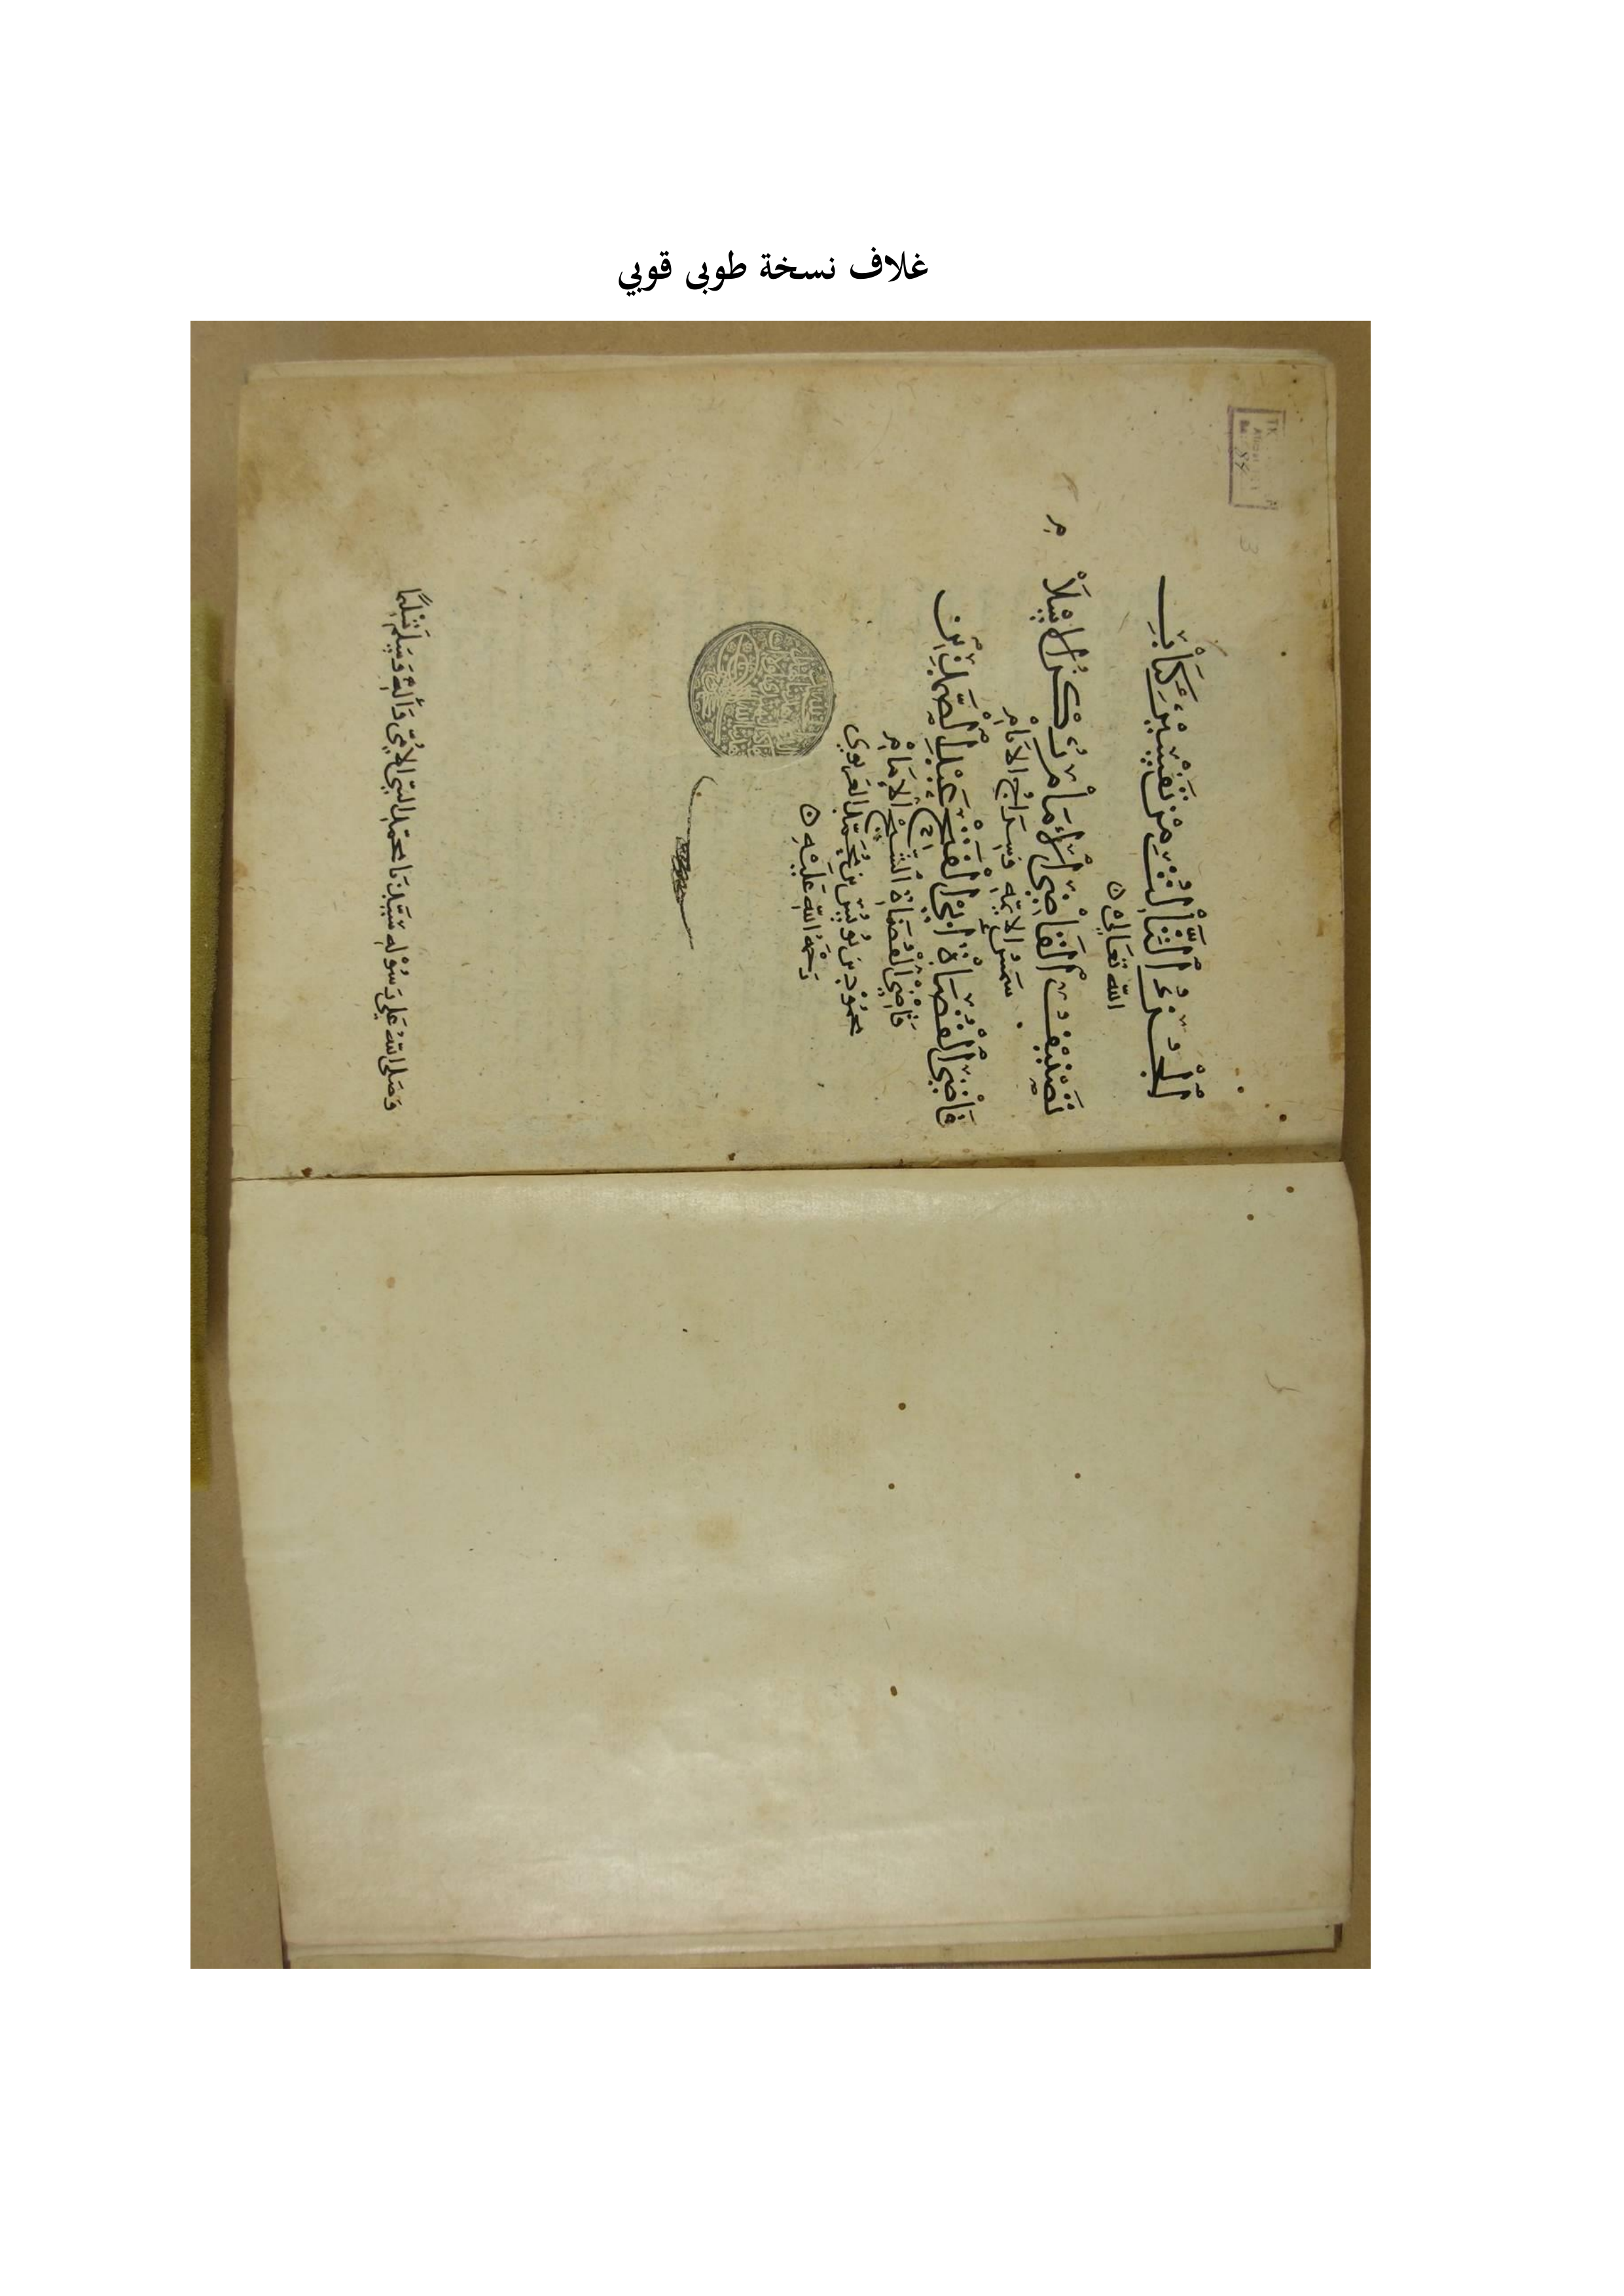 غلاف نسخة طوبى قوبي
الجُزءُ الثَّالِثُ مِنْ تَفْسِيْرِ كِتَابِ
اللّٰهِ تَعَالىٰ
تَصْنِيْفُ القَاضِي الإمَامِ رُكْنِ الإسْلَامِ
شمسُ الايمّه وَسِرَاجُ الأنَامِ
قَاضِي القُضَاةِ ابِي الفَتْحِ عَبْدِ الصَّمَدِ بْنِ
قَاضِي القُضَاة الشّيخ الإمَامِ
محمُوْد بن يُونُس بن مُحَمَّد الغزنوي
رَحمَةُ اللّهِ عَلَيْهِ
وَصَلى اللّهُ عَلى رَسُوْلِه سَيّدِنَا محمّدٍ النّبيِّ الأُمّيِّ وَآلِهِ وَسَلّم تَسْلِيْمًا